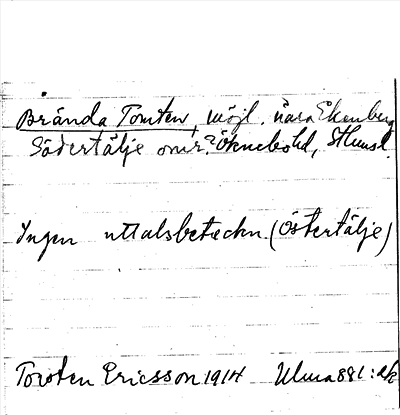 Brända Tomten, möjl. nära Ekenberg
Södertälje omr. Öknebohd, Sthmsl.
Ingen uttalsbeteckn. (Östertälje)
Torsten Ericsson 1914 Ulma 881: